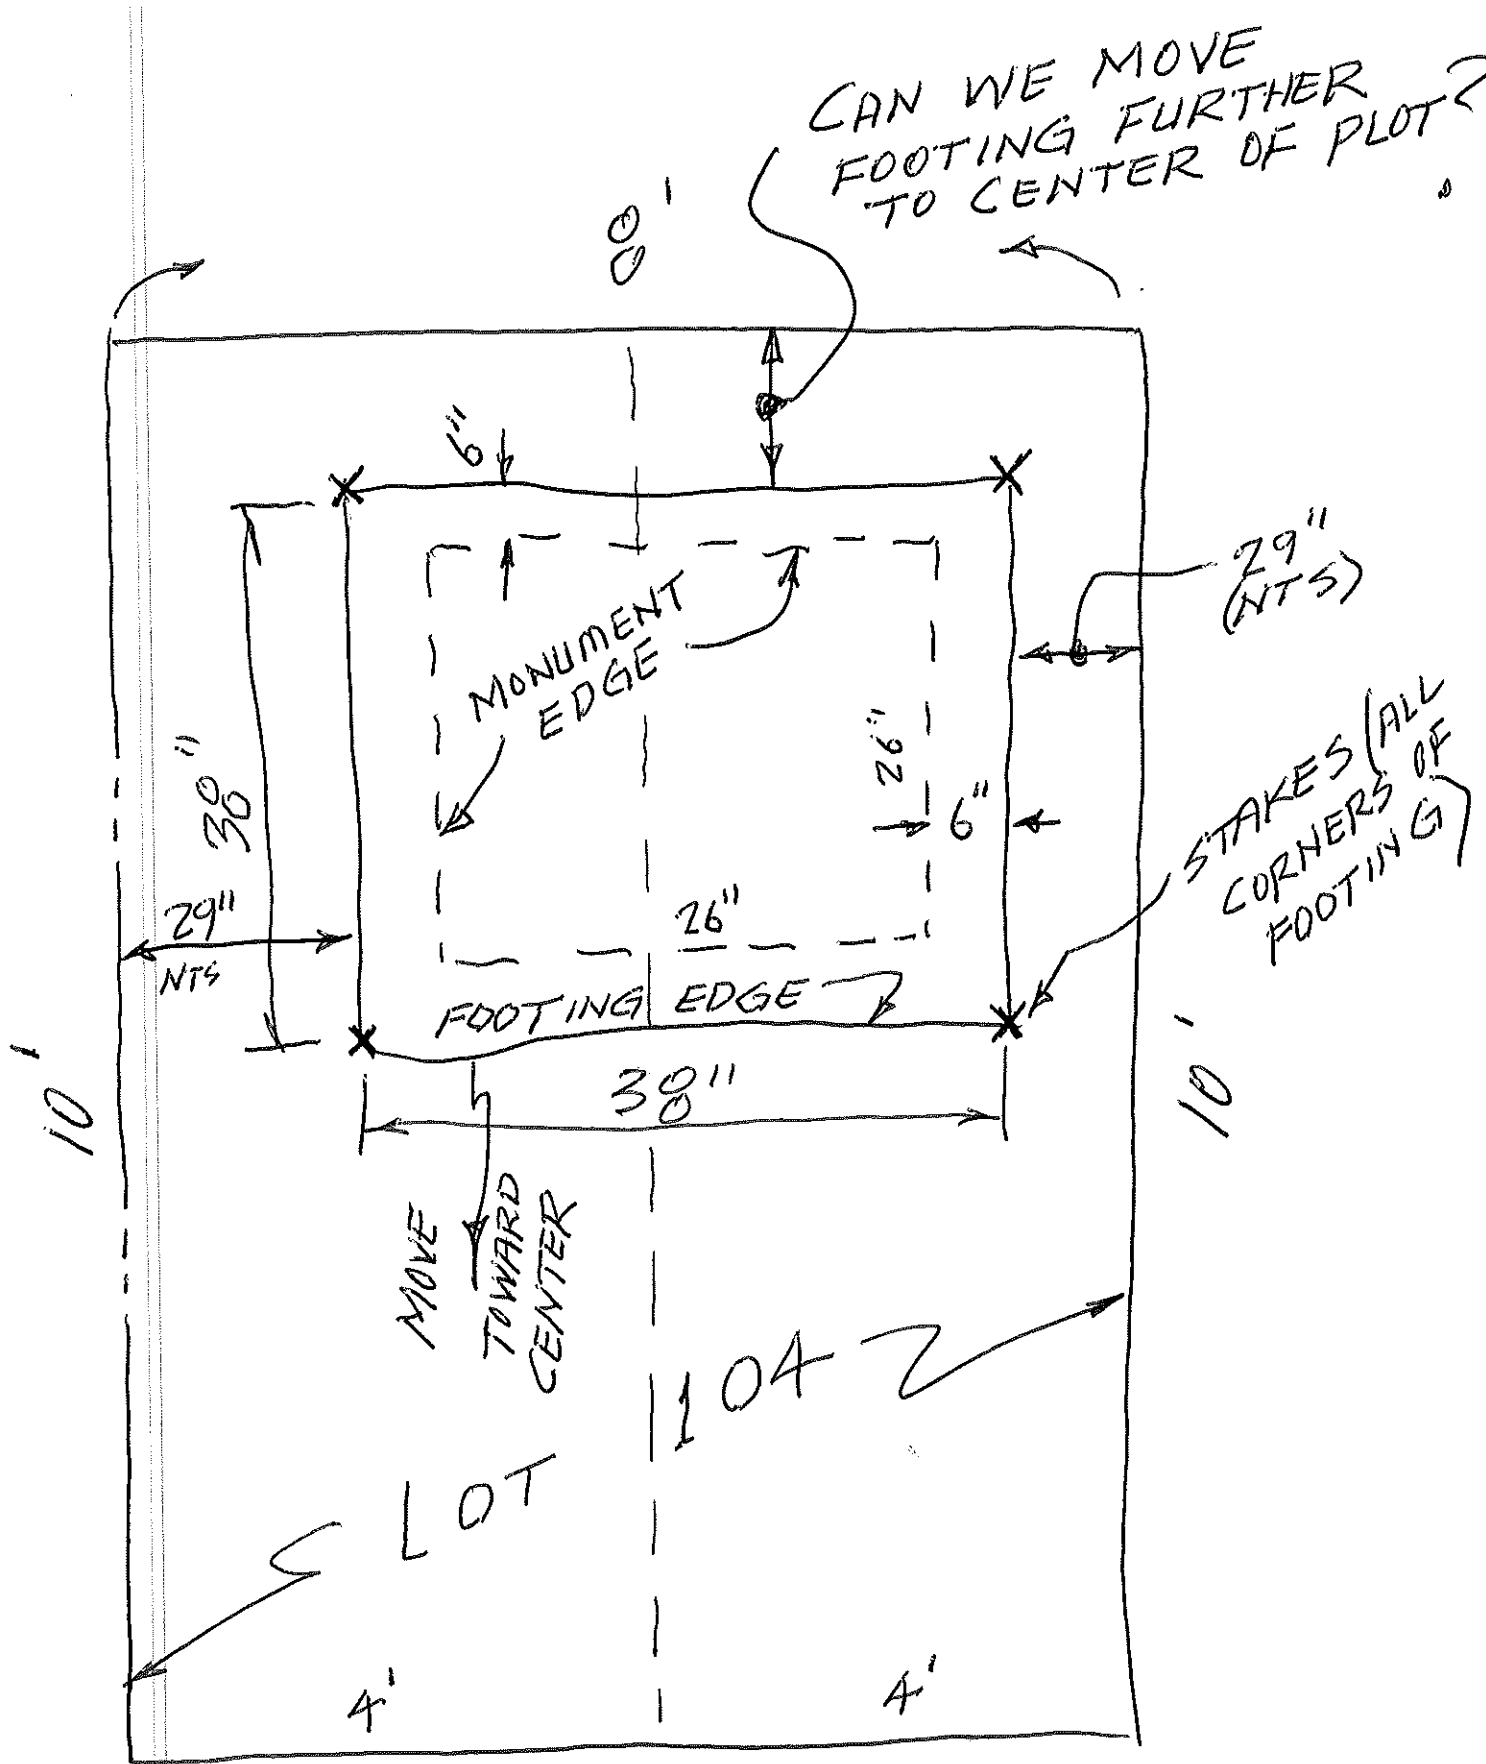 CAN WE MOVE
FOOTING FURTHER
TO CENTER OF PLOT?
8'
6"
29"
(NTS)
MONUMENT
EDGE
38"
26"
6"
STAKES (ALL
CORNERS OF
FOOTING)
29"
NTS
26"
FOOTING EDGE
10'
38"
10'
MOVE
TOWARD
CENTER
LOT 104
4'
4'